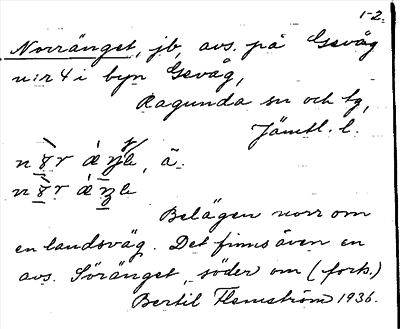 1-2.
Norränget, jb, avs. på Gevåg
n:r 4 i byn Gevåg,
Ragunda sn och tg,
Jämtl. l.
ä.
Belägen norr om
en landsväg. Det finns även en
avs. Söränget, söder om (forts.)
Bertil Flemström 1936.